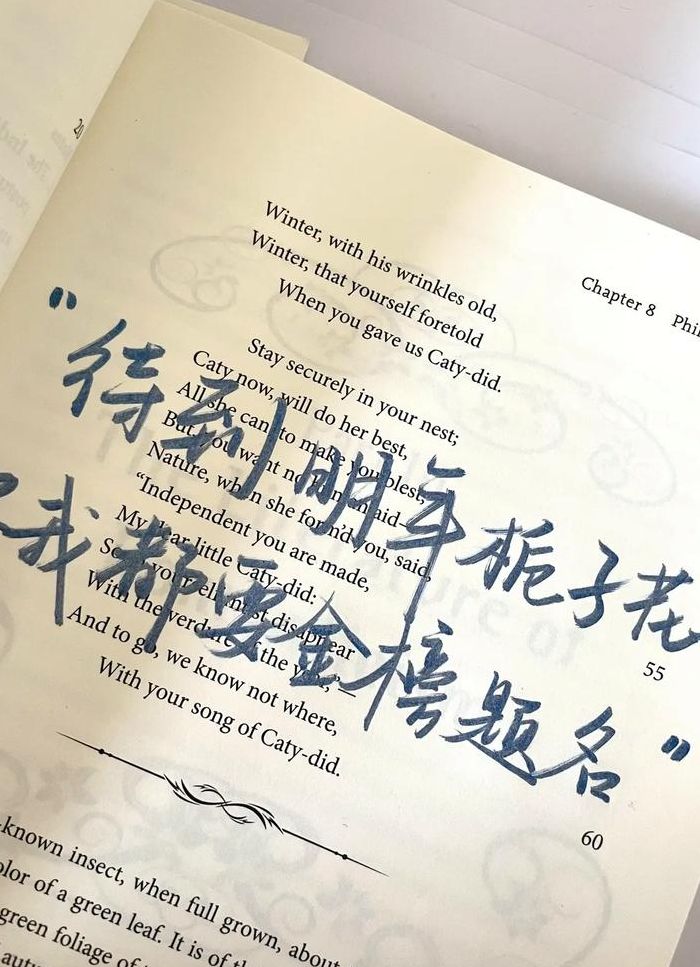 Chapter 8
Winter, with his wrinkles old,
Winter, that yourself foretold
When you gave us Caty-did.
Stay securely in your nest;
Caty now, will do her best,
All she can, to make you blest;
But, you want no human aid—
Nature, when she form'd you, said,
"Independent you are made,
My dear little Caty-did:
Soon yourself must disappear
With the verdure of the year,"—
And to go, we know not where,
With your song of Caty-did.
55
60
"待到明年栀子花
我都要金榜题名"
known insect, when full grown, about
color of a green leaf. It is of the
green foliage of